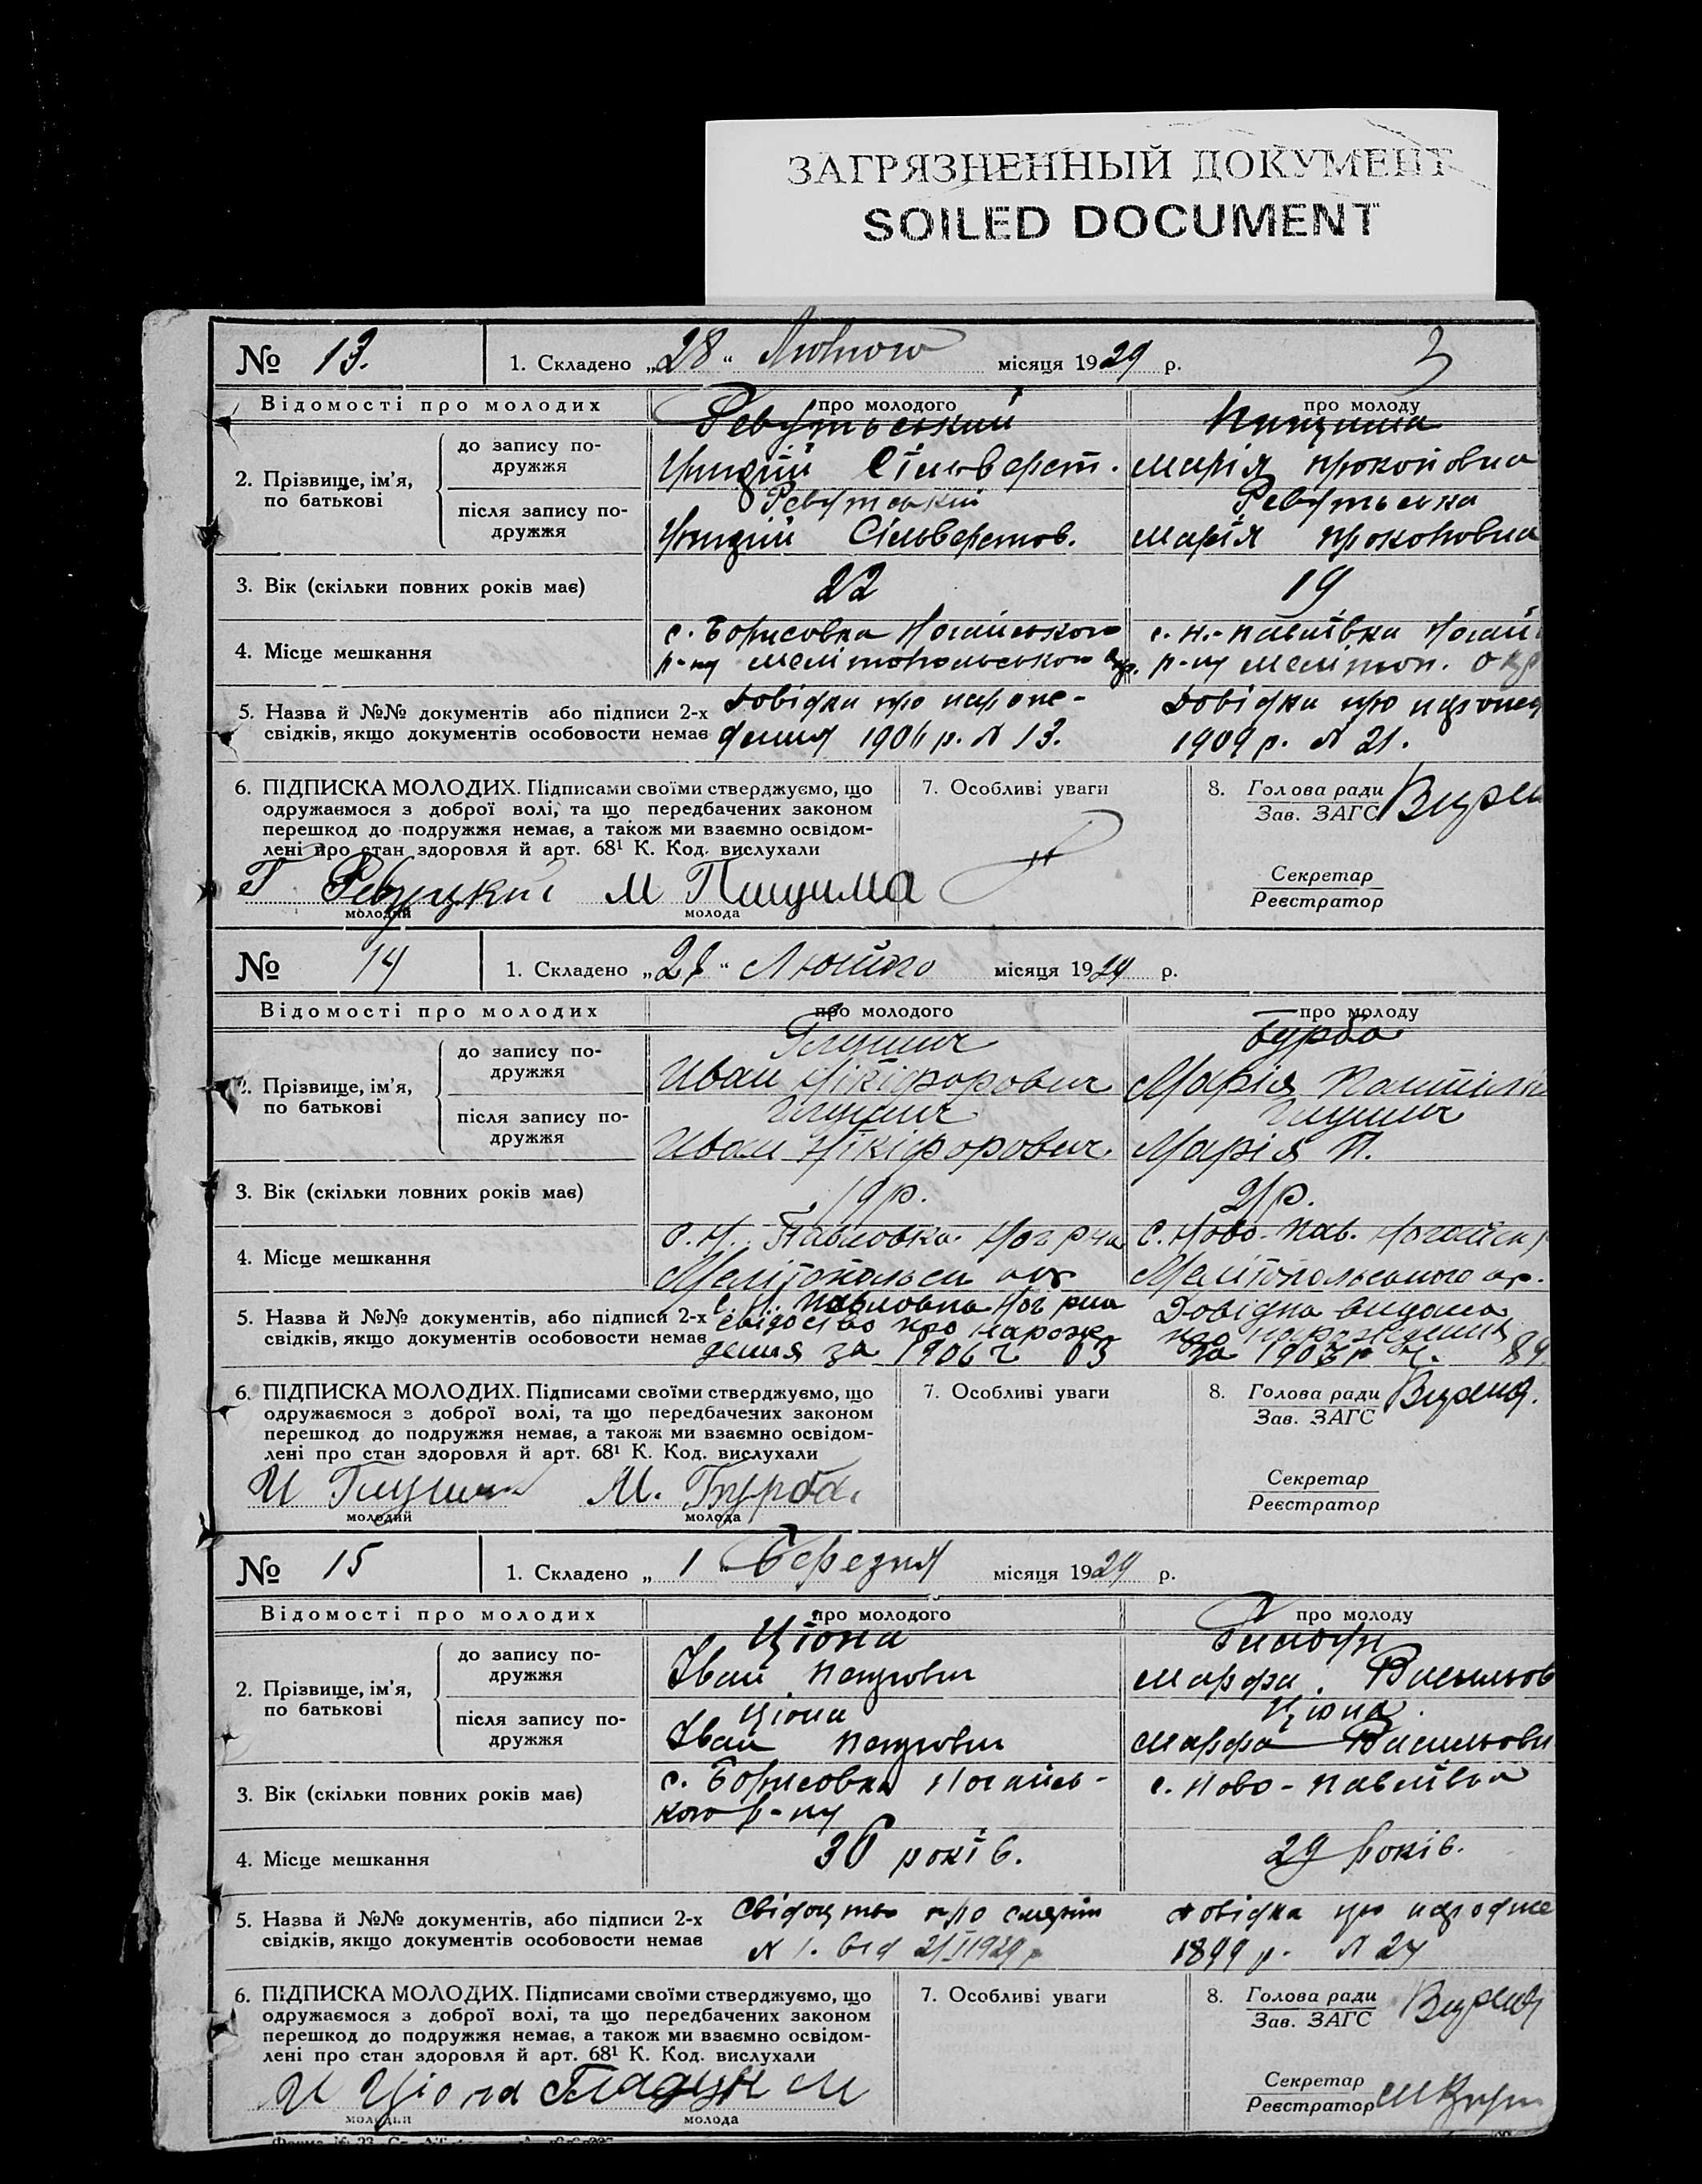 ЗАГРЯЗНЕННЫЙ ДОКУМЕНТ
SOILED DOCUMENT
№ 13. 1. Складено „28“ Лютого місяця 1929 р. 3
Відомості про молодих про молодого про молоду
2. Прізвище, ім'я, по батькові
до запису подружжя Ревутьский
Сільверст. Марія Прокоповна
після запису подружжя Ревутський Ревутська
Сільверстов. Марія Прокоповна
3. Вік (скільки повних років має) 22 19
4. Місце мешкання с. Борисовка Ногайського с. Н.-Павлівка Ногай
р-ну Мелітопольського окр. р-ну Мелітоп. окр
5. Назва й №№ документів або підписи 2-х Довідка про народже- Довідка про народ
свідків, якщо документів особовости немає дення 1906 р. N 13. 1909 р. N 21.
6. ПІДПИСКА МОЛОДИХ. Підписами своїми стверджуємо, що 7. Особливі уваги 8. Голова ради
одружаємося з доброї волі, та що передбачених законом Зав. ЗАГС
перешкод до подружжя немає, а також ми взаємно освідом-
лені про стан здоровля й арт. 68¹ К. Код. вислухали
Секретар
Г Ревуцкий М Пищима Реєстратор
молодий молода
№ 14 1. Складено „28“ Лютого місяця 1929 р.
Відомості про молодих про молодого про молоду
2. Прізвище, ім'я, по батькові
до запису подружжя Глушич Бурба
Иван Нікіфорович Марія
після запису подружжя Глушич Глушич
Иван Нікіфорович Марія П.
3. Вік (скільки повних років має) 19 р. 21 р.
4. Місце мешкання с. Н. Павловка Ног р-на с. Ново-Пав. Ногайск
Мелітопольск окр Мелітопольского окр.
5. Назва й №№ документів, або підписи 2-х с. Н. Павловка Ног рна Довідка видана
свідків, якщо документів особовости немає свідоство про нарож про нарождения
дения за 1906 г 03 за 190 р 84
6. ПІДПИСКА МОЛОДИХ. Підписами своїми стверджуємо, що 7. Особливі уваги 8. Голова ради
одружаємося з доброї волі, та що передбачених законом Зав. ЗАГС
перешкод до подружжя немає, а також ми взаємно освідом-
лені про стан здоровля й арт. 68¹ К. Код. вислухали
Секретар
И Глушич М. Бурба. Реєстратор
молодий молода
№ 15 1. Складено „ 1 “ Березня місяця 1929 р.
Відомості про молодих про молодого про молоду
2. Прізвище, ім'я, по батькові
до запису подружжя Ціона
Іван Петрович Марфа Васильов
після запису подружжя Ціона Ціона
Іван Петрович Марфа Васильовн
3. Вік (скільки повних років має) с. Борисовка Ногайсь- с. Ново-Павлівка
кого р-ну
4. Місце мешкання 30 років. 29 років.
5. Назва й №№ документів, або підписи 2-х Свідоцтво про смерть Довідка про народже
свідків, якщо документів особовости немає N 1. від 2/I 1929 р 1899 р. N 24
6. ПІДПИСКА МОЛОДИХ. Підписами своїми стверджуємо, що 7. Особливі уваги 8. Голова ради
одружаємося з доброї волі, та що передбачених законом Зав. ЗАГС
перешкод до подружжя немає, а також ми взаємно освідом-
лені про стан здоровля й арт. 68¹ К. Код. вислухали
Секретар
И Ціона М Реєстратор
молодий молода